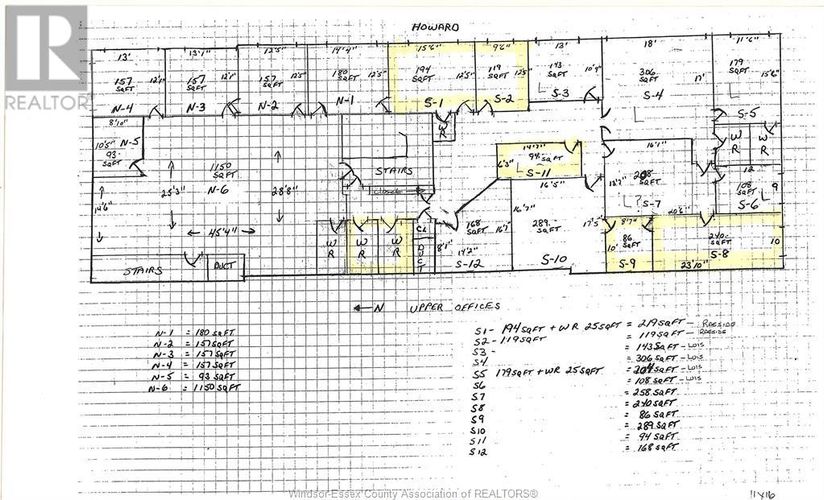 HOWARD
REALTOR®
13'
13'4"
12'5"
14'4"
15'6"
9'6"
13'
18'
11'6"
157 SQFT 12'1"
157 SQFT 12'1"
157 SQFT 12'5"
180 SQFT 12'5"
194 SQFT 12'5"
119 SQFT 12'5"
143 SQFT
306 SQFT 17'
179 SQFT 15'6"
N-4
N-3
N-2
N-1
S-1
S-2
S-3
S-4
S-5
8'10"
N-5
10'5" 93 SQFT
WR
14'7"
94 SQFT
6'3"
S-11
16'1"
WR
WR
1150 SQFT
N-6
25'3"
28'8"
14'6"
45'4"
STAIRS
CLOSET
16'5"
S-7
12
108 SQFT
9
S-6
168 SQFT
16'7"
289 SQFT
17'5"
8'7"
86 SQFT
10'
S-9
240 SQFT
10
S-8
23'10"
WR
WR
WR
CL
DUCT
8'1"
14'2"
S-12
S-10
STAIRS
DUCT
←N UPPER OFFICES
N-1 = 180 SQFT
N-2 = 157 SQFT
N-3 = 157 SQFT
N-4 = 157 SQFT
N-5 = 93 SQFT
N-6 = 1150 SQFT
S1- 194 SQFT + WR 25 SQFT = 219 SQFT
S2- 119 SQFT = 119 SQFT
S3- = 143 SQFT - LOIS
S4 = 306 SQFT - LOIS
S5 179 SQFT + WR 25 SQFT = 204 SQFT - LOIS
S6 = 108 SQFT - LOIS
S7 = 258 SQFT
S8 = 240 SQFT
S9 = 86 SQFT
S10 = 289 SQFT
S11 = 94 SQFT
S12 = 168 SQFT
Windsor-Essex County Association of REALTORS®
11x16